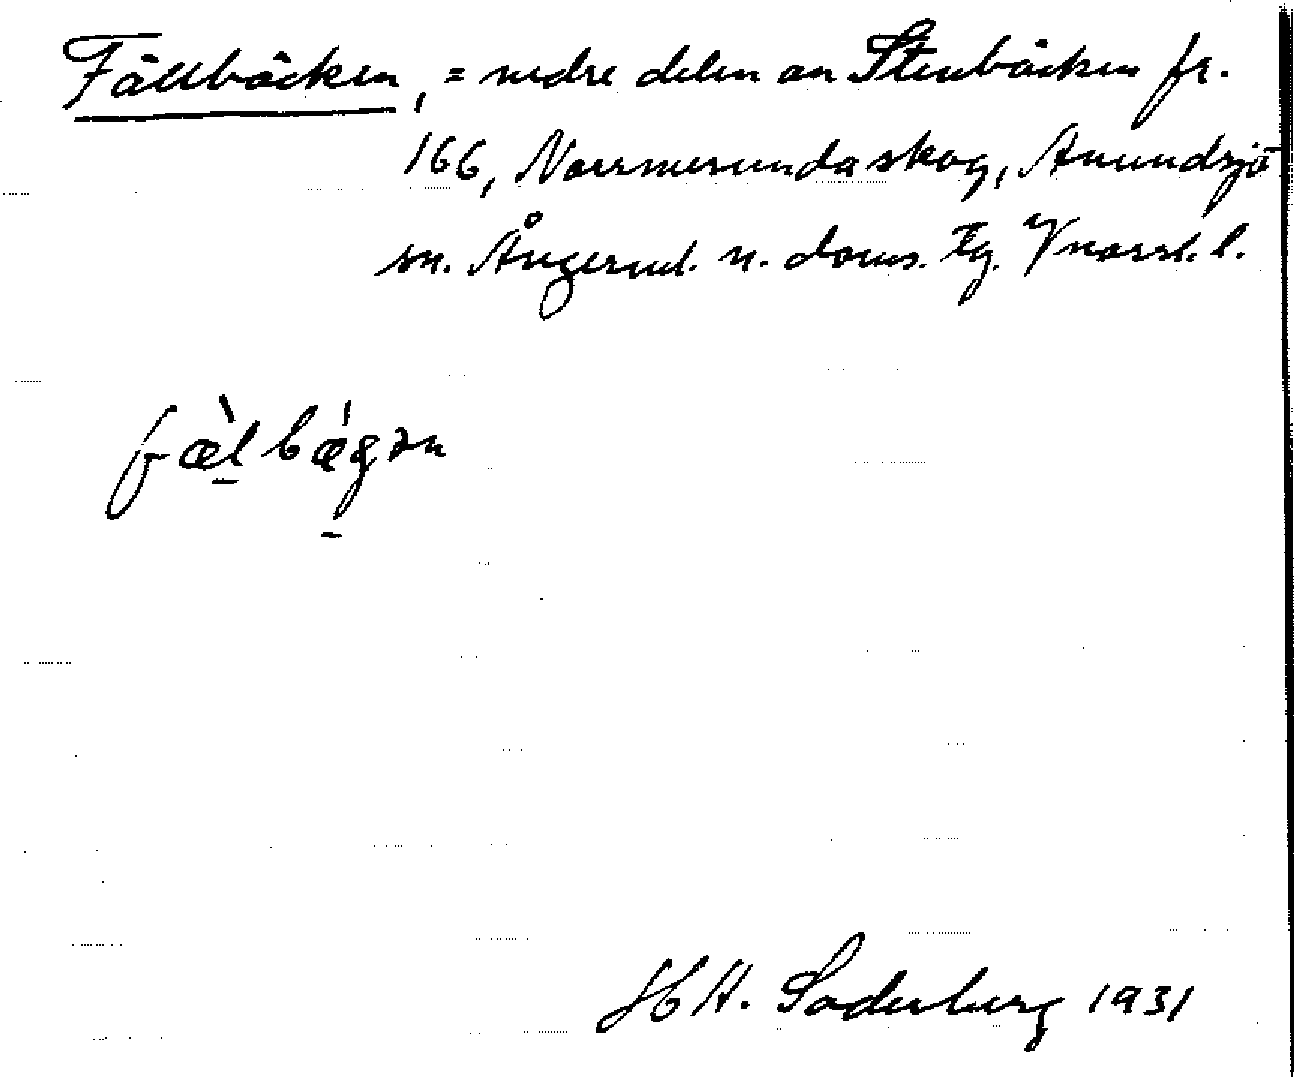 Fällbäcken, = nedre delen av Stenbäcken fr.
166, Norrmesundaskog, Anundsjö
sn. Ångerml. n. doms. tg. Vnorrl. l.
fæ̀lbǽgən
H H. Söderberg 1931